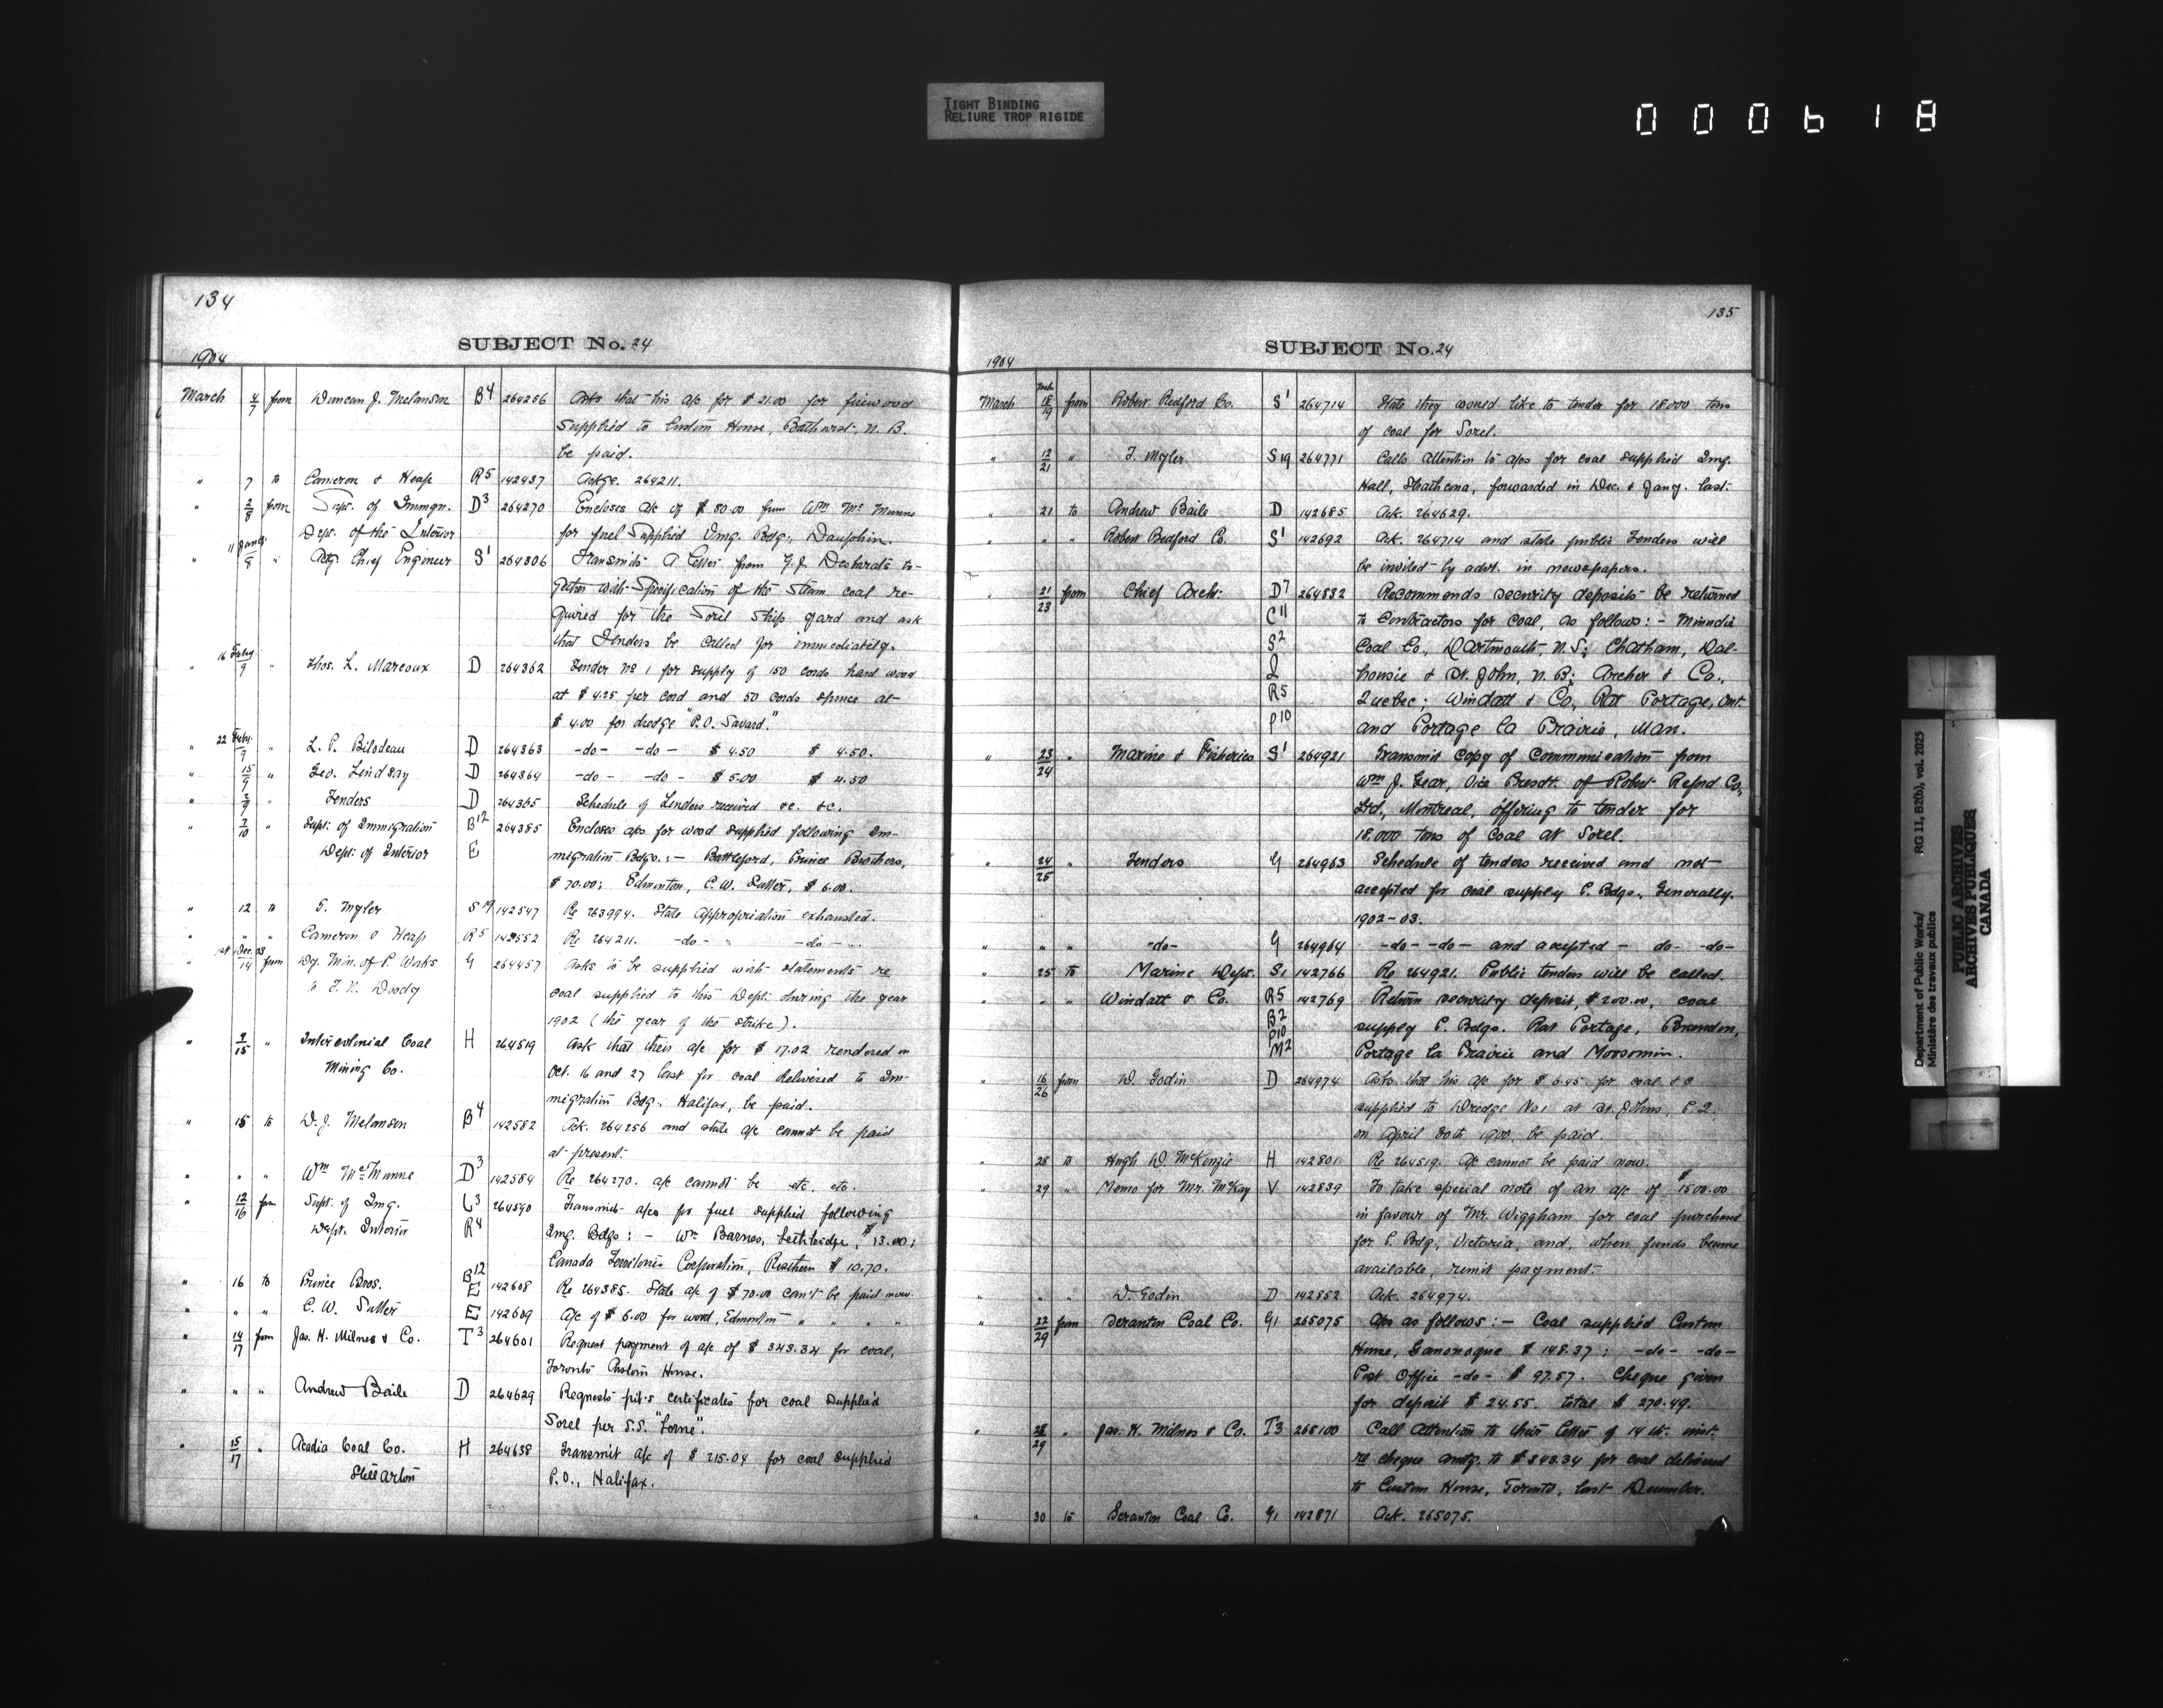 TIGHT BINDING
RELIURE TROP RIGIDE
000618
134
SUBJECT No. 24
1904
March 4/7 from Duncan J. Melanson B4 264256 Asks that his a/c for $21.00 for firewood
supplied to Custom House, Bathurst, N. B.
be paid.
" 7 to Cameron & Heap R5 142437 Ackge. 264211.
" 2/8 from Supt. of Immgn. D3 264270 Encloses a/c of $80.00 from Wm McMunne
Dept. of the Interior for fuel supplied Img. Bdg., Dauphin.
" 11 Jan'y/8 " Actg. Chief Engineer S1 264306 Transmits a letter from G. J. Desbarats to-
gether with Specification of the steam coal re-
quired for the Sorel Ship yard and ask
that Tenders be called for immediately.
" 16 Feby/9 " Thos. L. Marcoux D 264362 Tender No 1 for supply of 150 cords hard wood
at $4.25 per cord and 50 cords spruce at
$4.00 for dredge "P.O. Savard."
" 22 Feby./9 " L. P. Bilodeau D 264363 -do- -do- $4.50 $4.50.
" 15/9 " Geo. Lindsay D 264364 -do- -do- $5.00 $4.50
" Tenders D 264365 Schedule of Tenders received &c. &c.
" 7/10 " Supt. of Immigration B12 264385 Encloses a/cs for wood supplied following Im-
Dept. of Interior E migration Bdgs.:- Battleford, Prince Brothers,
$70.00; Edmonton, C. W. Sutter, $6.00.
" 12 to T. Myler S19 142547 Re 263994. State Appropriation exhausted.
" " " Cameron & Heap R5 142552 Re 264211. -do- " -do-
" Dec 03/14 from Dy. Min. of P. Works G 264457 Asks to be supplied with statements re
to coal supplied to this Dept. during the year
1902 (the year of the strike).
" 7/15 " Intercolonial Coal H 264519 Ask that their a/c for $17.02 rendered on
Mining Co. Oct. 16 and 27 last for coal delivered to Im-
migration Bdg. Halifax, be paid.
" 15 to D. J. Melanson B4 142582 Ack. 264256 and state a/c cannot be paid
at present.
" " " Wm McMunne D3 142584 Re 264270. a/c cannot be etc. etc.
" 12/16 from Supt. of Img. L3 264590 Transmits a/cs for fuel supplied following
Dept. Interior R4 Img. Bdgs:- Wm Barnes, Lethbridge, $13.00;
Canada Territories Corporation, Rosthern $10.70.
" 16 to Prince Bros. B12 E 142608 Re 264385. State a/c of $70.00 can't be paid now.
" " " C. W. Sutter E 142609 A/c of $6.00 for wood, Edmonton " " " "
" 14/17 from Jas. H. Milnes & Co. T3 264601 Request payment of a/c of $343.34 for coal,
Toronto Custom House.
" " " Andrew Baile D 264629 Requests certificates for coal supplied
Sorel per S.S. "Lorne".
" 15/17 " Acadia Coal Co. H 264638 Transmit a/c of $215.04 for coal supplied
Stellarton P.O., Halifax.
135
SUBJECT No. 24
1904
March 18/19 from Robert Redford Co. S1 264714 State they would like to tender for 18000 tons
of coal for Sorel.
" 12/21 " T. Myler S19 264771 Calls attention to a/cs for coal supplied Img.
Hall, Strathcona, forwarded in Dec. & Jany. last.
" 21 to Andrew Baile D 142685 Ack. 264629.
" " " Robert Bedford Co. S1 142692 Ack. 264714 and state public Tenders will
be invited by advt. in newspapers.
" 21/23 from Chief Archt. D7 264832 Recommends security deposits be returned
C11 to Contractors for coal, as follows:- Minudie
S2 Coal Co., Dartmouth N.S; Chatham, Dal-
Q housie & St. John, N.B; Archer & Co.,
R5 Quebec; Windatt & Co, Rat Portage, Ont.
P10 and Portage la Prairie, Man.
" 23/24 " Marine & Fisheries S1 264921 Transmit copy of Communication from
Wm J. Gear, Vice Presdt. of Robert Reford Co,
Ltd., Montreal, offering to tender for
18.000 tons of coal at Sorel.
" 24/25 " Tenders G 264963 Schedule of tenders received and not
accepted for coal supply P. Bdgs. Generally.
1902-03.
" " " -do- G 264964 -do- -do- and accepted - do- -do-
" 25 to Marine Dept. S1 142766 Re 264921. Public tenders will be called.
" " " Windatt & Co. R5 142769 Return security deposit, $200.00, coal
B2 supply P. Bdgs. Rat Portage, Brandon,
P10 M2 Portage la Prairie and Moosomin.
" 16/26 from D. Godin D 264974 Asks that his a/c for $6.45 for coal &c
supplied to Dredge No 1 at St. Johns, P.Q.
on April 30th 1900, be paid.
" 28 to Hugh D. McKenzie H 142801 Re 264519. A/c cannot be paid now.
" 29 " Memo for Mr. McKay V 142839 To take special note of an a/c of $1500.00
in favour of Mr. Wiggham for coal purchased
for P. Bdg, Victoria, and, when funds become
available, remit payment.
" " " D. Godin D 142852 Ack. 264974.
" 22/29 from Scranton Coal Co. G1 265075 A/cs as follows:- Coal supplied Custom
House, Gananoque $148.37; -do- -do-
Post Office -do- $97.57. Cheque given
for deposit $24.55. total $270.49.
" 28/29 " Jas. H. Milnes & Co. T3 265100 Call attention to their letter of 14th. inst.
re cheque amtg. to $343.34 for coal delivered
to Custom House, Toronto, last December.
" 30 to Scranton Coal Co. G1 142871 Ack. 265075.
Department of Public Works/ RG 11, B2(b), vol. 2025
Ministère des travaux publics
PUBLIC ARCHIVES
ARCHIVES PUBLIQUES
CANADA